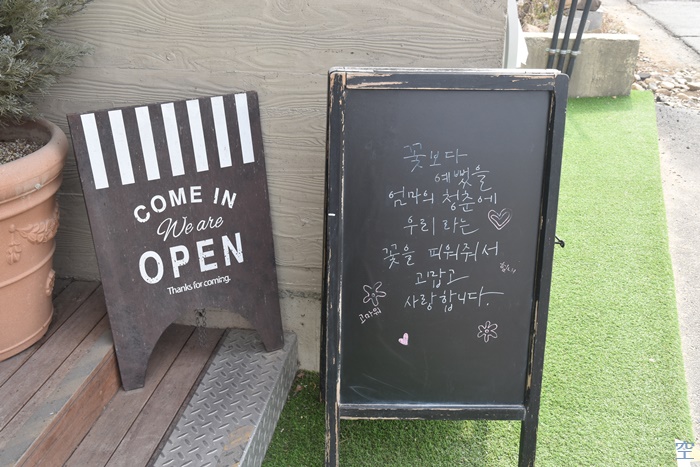 COME IN
We are
OPEN
Thanks for coming.
꽃보다
예뻤을
엄마의 청춘에
우리라는
꽃을 피워줘서
고맙고
사랑합니다.
고마워
空